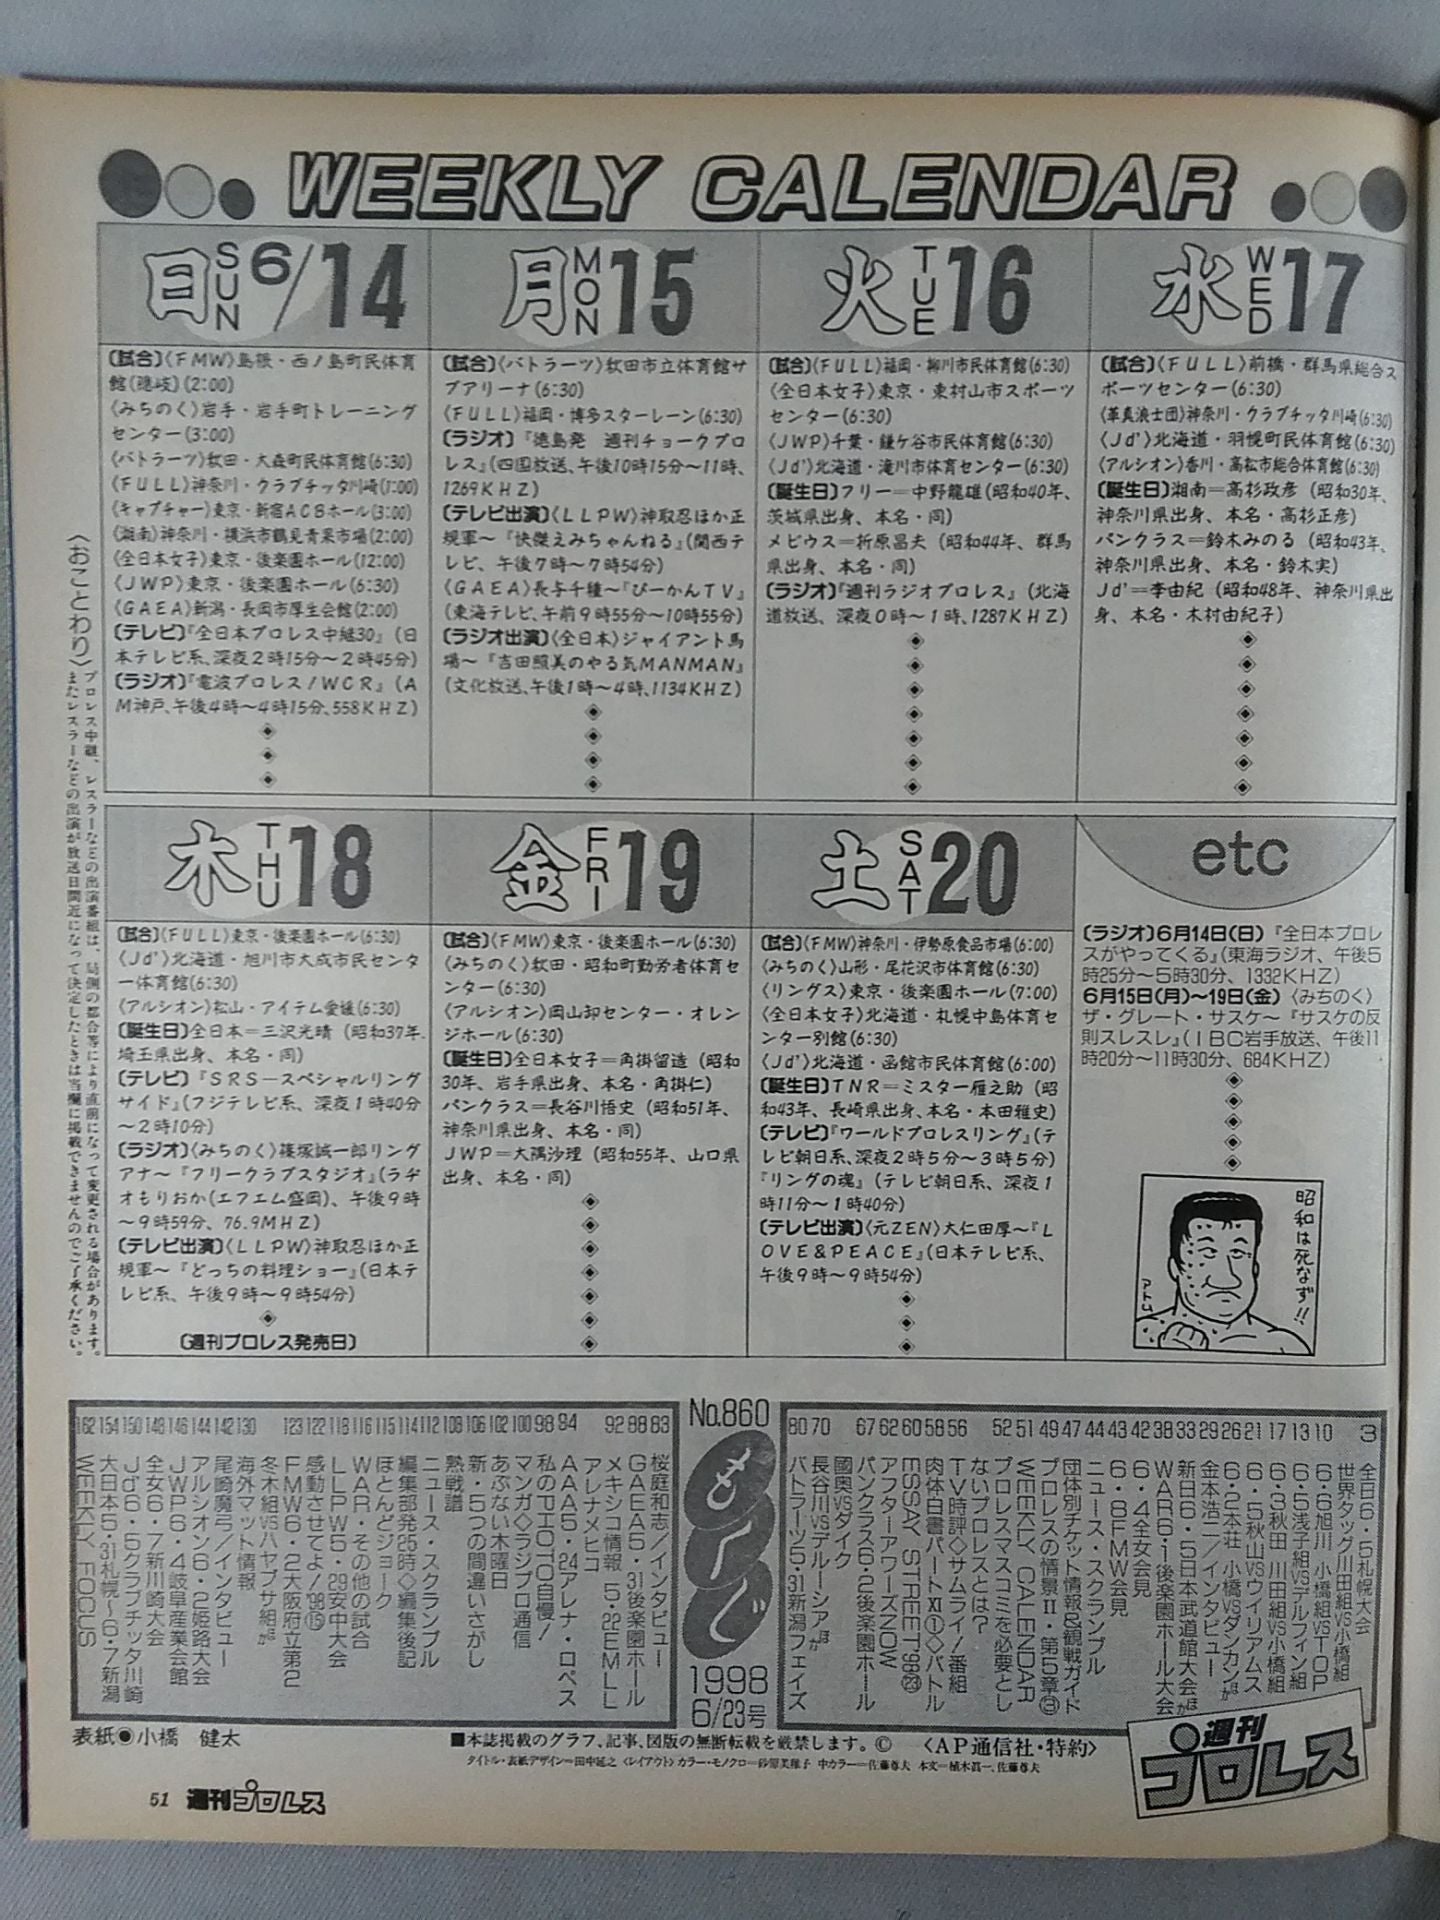 WEEKLY CALENDAR
日 SUN 6/14
〔試合〕〈FMW〉島根・西ノ島町民体育
館(隠岐)(2:00)
〈みちのく〉岩手・岩手町トレーニング
センター(3:00)
〈バトラーツ〉秋田・大森町民体育館(6:30)
〈FULL〉神奈川・クラブチッタ川崎(1:00)
〈キャプチャー〉東京・新宿ACBホール(3:00)
〈湘南〉神奈川・横浜市鶴見青果市場(2:00)
〈全日本女子〉東京・後楽園ホール(12:00)
〈JWP〉東京・後楽園ホール(6:30)
〈GAEA〉新潟・長岡市厚生会館(2:00)
〔テレビ〕『全日本プロレス中継30』(日
本テレビ系、深夜2時15分〜2時45分)
〔ラジオ〕『電波プロレス!WCR』(A
M神戸、午後4時〜4時15分、558KHZ)
月 MON 15
〔試合〕〈バトラーツ〉秋田市立体育館サ
ブアリーナ(6:30)
〈FULL〉福岡・博多スターレーン(6:30)
〔ラジオ〕『徳島発 週刊チョークプロ
レス』(四国放送、午後10時15分〜11時、
1269KHZ)
〔テレビ出演〕〈LLPW〉神取忍ほか正
規軍〜『快傑えみちゃんねる』(関西テ
レビ、午後7時〜7時54分)
〈GAEA〉長与千種〜『ぴーかんTV』
(東海テレビ、午前9時55分〜10時55分)
〔ラジオ出演〕〈全日本〉ジャイアント馬
場〜『吉田照美のやる気MANMAN』
(文化放送、午後1時〜4時、1134KHZ)
火 TUE 16
〔試合〕〈FULL〉福岡・柳川市民体育館(6:30)
〈全日本女子〉東京・東村山市スポーツ
センター(6:30)
〈JWP〉千葉・鎌ケ谷市民体育館(6:30)
〈Jd'〉北海道・滝川市体育センター(6:30)
〔誕生日〕フリー=中野龍雄(昭和40年、
茨城県出身、本名・同)
メビウス=折原昌夫(昭和44年、群馬
県出身、本名・同)
〔ラジオ〕『週刊ラジオプロレス』(北海
道放送、深夜0時〜1時、1287KHZ)
水 WED 17
〔試合〕〈FULL〉前橋・群馬県総合ス
ポーツセンター(6:30)
〈革真浪士団〉神奈川・クラブチッタ川崎(6:30)
〈Jd'〉北海道・羽幌町民体育館(6:30)
〈アルシオン〉香川・高松市総合体育館(6:30)
〔誕生日〕湘南=高杉政彦(昭和30年、
神奈川県出身、本名・高杉正彦)
パンクラス=鈴木みのる(昭和43年、
神奈川県出身、本名・鈴木実)
Jd'=李由紀(昭和48年、神奈川県出
身、本名・木村由紀子)
木 THU 18
〔試合〕〈FULL〉東京・後楽園ホール(6:30)
〈Jd'〉北海道・旭川市大成市民センタ
ー体育館(6:30)
〈アルシオン〉松山・アイテム愛媛(6:30)
〔誕生日〕全日本=三沢光晴(昭和37年、
埼玉県出身、本名・同)
〔テレビ〕『SRS-スペシャルリング
サイド』(フジテレビ系、深夜1時40分
〜2時10分)
〔ラジオ〕〈みちのく〉篠塚誠一郎リング
アナ〜『フリークラブスタジオ』(ラヂ
オもりおか(エフエム盛岡)、午後9時
〜9時59分、76.9MHZ)
〔テレビ出演〕〈LLPW〉神取忍ほか正
規軍〜『どっちの料理ショー』(日本テ
レビ系、午後9時〜9時54分)
〔週刊プロレス発売日〕
金 FRI 19
〔試合〕〈FMW〉東京・後楽園ホール(6:30)
〈みちのく〉秋田・昭和町勤労者体育セ
ンター(6:30)
〈アルシオン〉岡山卸センター・オレン
ジホール(6:30)
〔誕生日〕全日本女子=角掛留造(昭和
30年、岩手県出身、本名・角掛仁)
パンクラス=長谷川悟史(昭和51年、
神奈川県出身、本名・同)
JWP=大隅沙理(昭和55年、山口県
出身、本名・同)
土 SAT 20
〔試合〕〈FMW〉神奈川・伊勢原食品市場(6:00)
〈みちのく〉山形・尾花沢市体育館(6:30)
〈リングス〉東京・後楽園ホール(7:00)
〈全日本女子〉北海道・札幌中島体育セ
ンター別館(6:00)
〈Jd'〉北海道・函館市民体育館(6:00)
〔誕生日〕TNR=ミスター雁之助(昭
和43年、長崎県出身、本名・本田雅史)
〔テレビ〕『ワールドプロレスリング』(テ
レビ朝日系、深夜2時5分〜3時5分)
『リングの魂』(テレビ朝日系、深夜1
時11分〜1時40分)
〔テレビ出演〕〈元ZEN〉大仁田厚〜『L
OVE&PEACE』(日本テレビ系、
午後9時〜9時54分)
etc
〔ラジオ〕6月14日(日)『全日本プロレ
スがやってくる』(東海ラジオ、午後5
時25分〜5時30分、1332KHZ)
6月15日(月)〜19日(金)〈みちのく〉
ザ・グレート・サスケ〜『サスケの反
則スレスレ』(IBC岩手放送、午後11
時20分〜11時30分、684KHZ)
昭和は死なず!!
アトム
〈おことわり〉プロレス中継、レスラーなどの出演番組は、局側の都合等により直前になって変更される場合があります。
またレスラーなどの出演が放送日間近になって決定したときは当欄に掲載できませんのでご了承ください。
No.860
もくじ
1998
6/23号
3 全日6・5札幌大会
世界タッグ川田組VS小橋組
10 6・6旭川 小橋組VSTOP
13 6・5浅子組VSデルフィン組
17 6・3秋田 川田組VS小橋組
21 6・5秋山VSウイリアムス
26 6・2本荘 小橋VSダンカンほか
29 金本浩二/インタビュー
33 新日6・5日本武道館大会ほか
38 WAR6・1後楽園ホール大会
42 6・4全女会見
43 6・8FMW会見
44 ニュース・スクランブル
47 団体別チケット情報&観戦ガイド
49 プロレスの情景II・第15章⑰
51 WEEKLY CALENDAR
52 プロレスマスコミを必要とし
ないプロレスとは?
56 TV時評◇サムライ!番組
58 肉体白書パートXI①◇バトル
60 ESSAY STREET'98㉓
62 アフターアワーズNOW
67 パンクラス6・2後楽園ホール
國奥VSダイク
70 長谷川VSデルーシアほか
80 バトラーツ5・31新潟フェイズ
83 桜庭和志/インタビュー
88 GAEA5・31後楽園ホール
92 メキシコ情報 5・22EMLL
アレナメヒコ
94 AAA5・24アレナ・ロペス
98 私のPHOTO自慢!
100 マンガ◇ラジプロ通信
102 あぶない木曜日
106 新・5つの間違いさがし
108 熱戦譜
112 ニュース・スクランブル
114 編集部発25時◇編集後記
115 ほとんどジョーク
116 WAR・その他の試合
118 LLPW5・29安中大会
122 感動させてよ!'98⑮
123 FMW6・2大阪府立第2
冬木組VSハヤブサ組ほか
130 海外マット情報
142 尾崎魔弓/インタビュー
144 アルシオン6・2姫路大会
146 JWP6・4岐阜産業会館
148 全女6・7新川崎大会
150 Jd'6・5クラブチッタ川崎
154 大日本5・31札幌〜6・7新潟
162 WEEKLY FOCUS
表紙●小橋 健太
■本誌掲載のグラフ、記事、図版の無断転載を厳禁します。© 〈AP通信社・特約〉
タイトル・表紙デザイン=田中延之 〈レイアウト〉カラー・モノクロ=砂原美種子 中カラー=佐藤尊夫 本文=植木眞一、佐藤尊夫
週刊プロレス
51 週刊プロレス